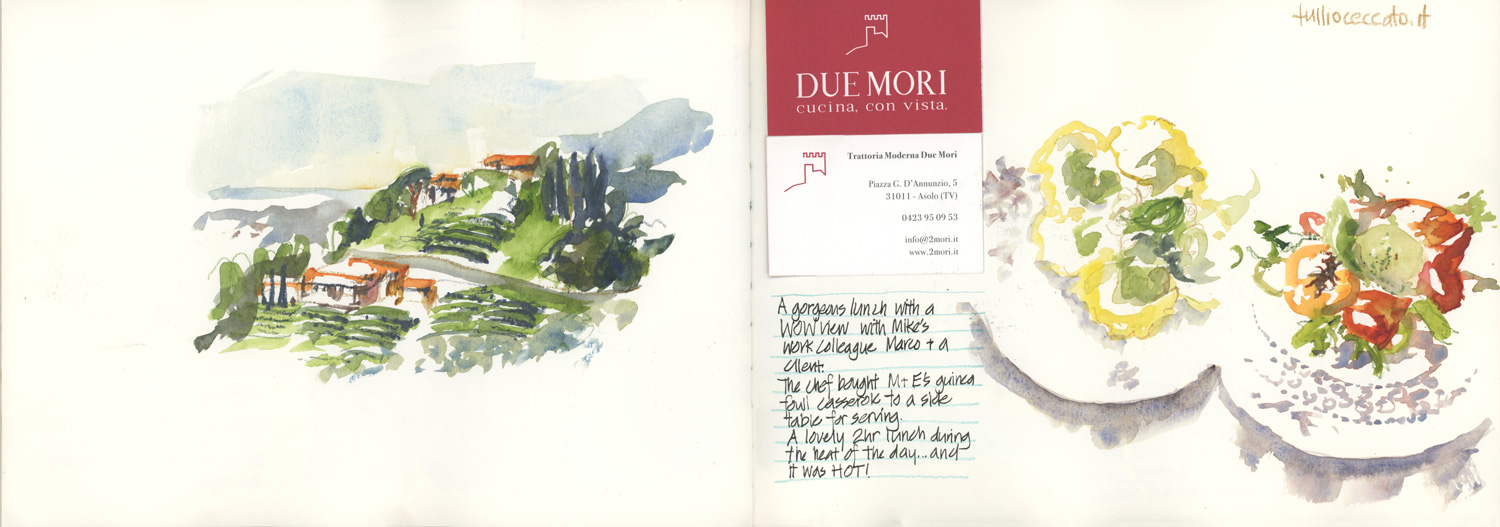 tullioceccato.it
DUE MORI
cucina, con vista.
Trattoria Moderna Due Mori
Piazza G. D'Annunzio, 5
31011 - Asolo (TV)
0423 95 09 53
info@2mori.it
www.2mori.it
A gorgeous lunch with a
WOW view with Mike's
work colleague Marco + a
client.
The chef bought M+E's guinea
fowl casserole to a side
table for serving.
A lovely 2hr lunch during
the heat of the day... and
it was HOT!